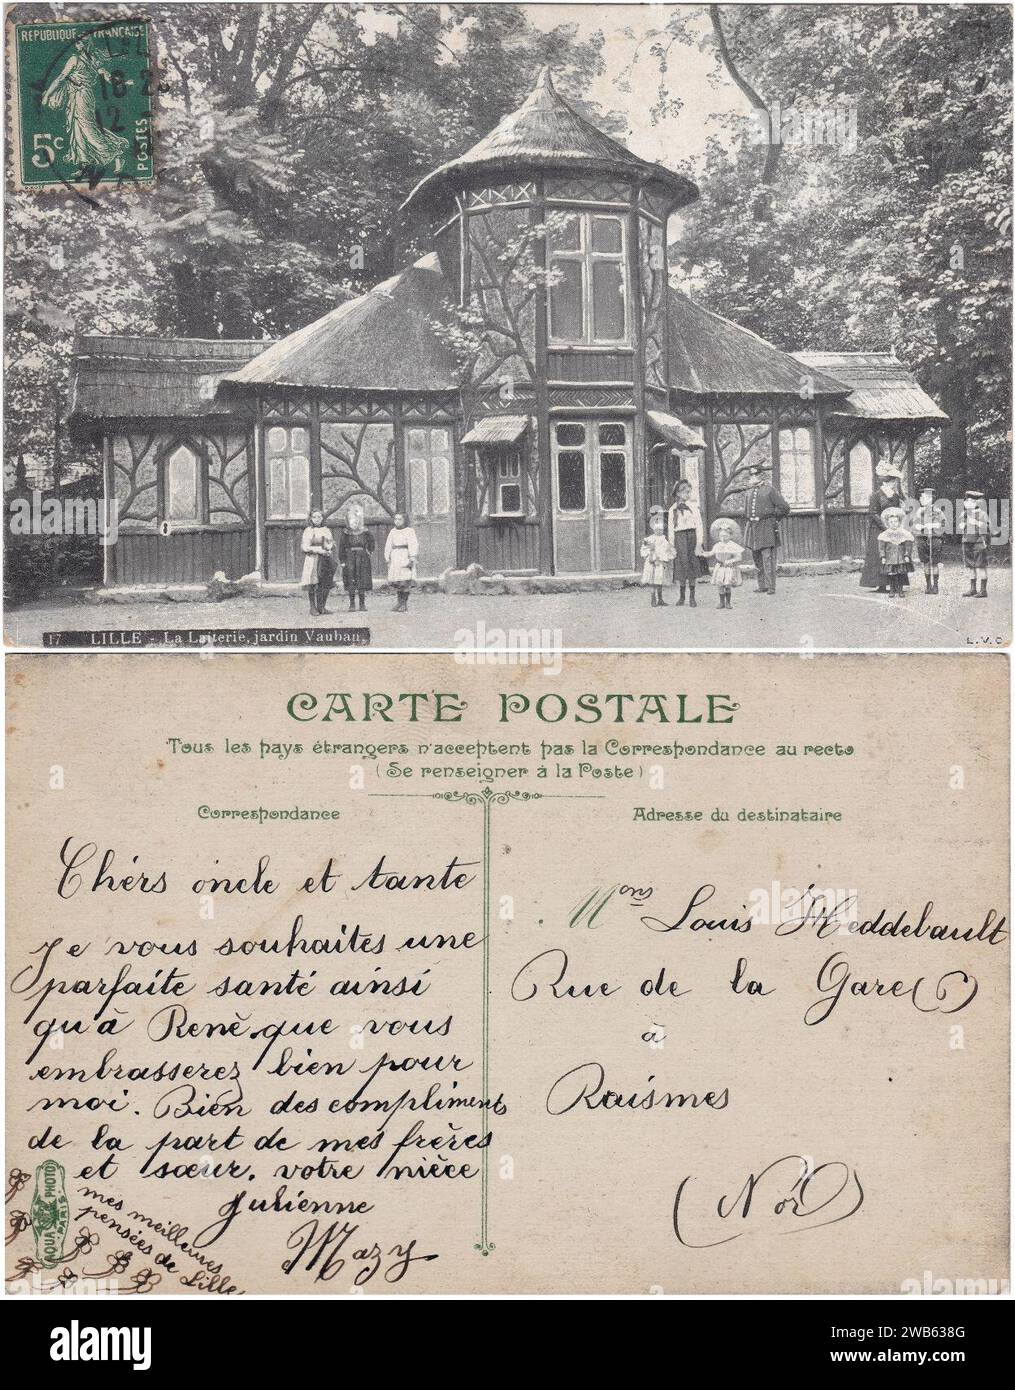 REPUBLIQUE FRANÇAISE
18-2
12
5c
POSTES
17 LILLE - La Laiterie, jardin Vauban.
L.V.C
CARTE POSTALE
Tous les pays étrangers n'acceptent pas la Correspondance au recto
(Se renseigner à la Poste)
Correspondance
Chérs oncle et tante
Je vous souhaites une
parfaite santé ainsi
qu'à Renè que vous
embrasserez bien pour
moi. Bien des compliments
de la part de mes frères
et sœur. votre nièce
Julienne
Mazy
mes meilleures
pensées de
Lille
AQUA PHOTO
PARIS
Adresse du destinataire
Mons Louis Heddebault
Rue de la Gare
à
Raismes
(Nor)
alamy
Image ID: 2WB638G
www.alamy.com